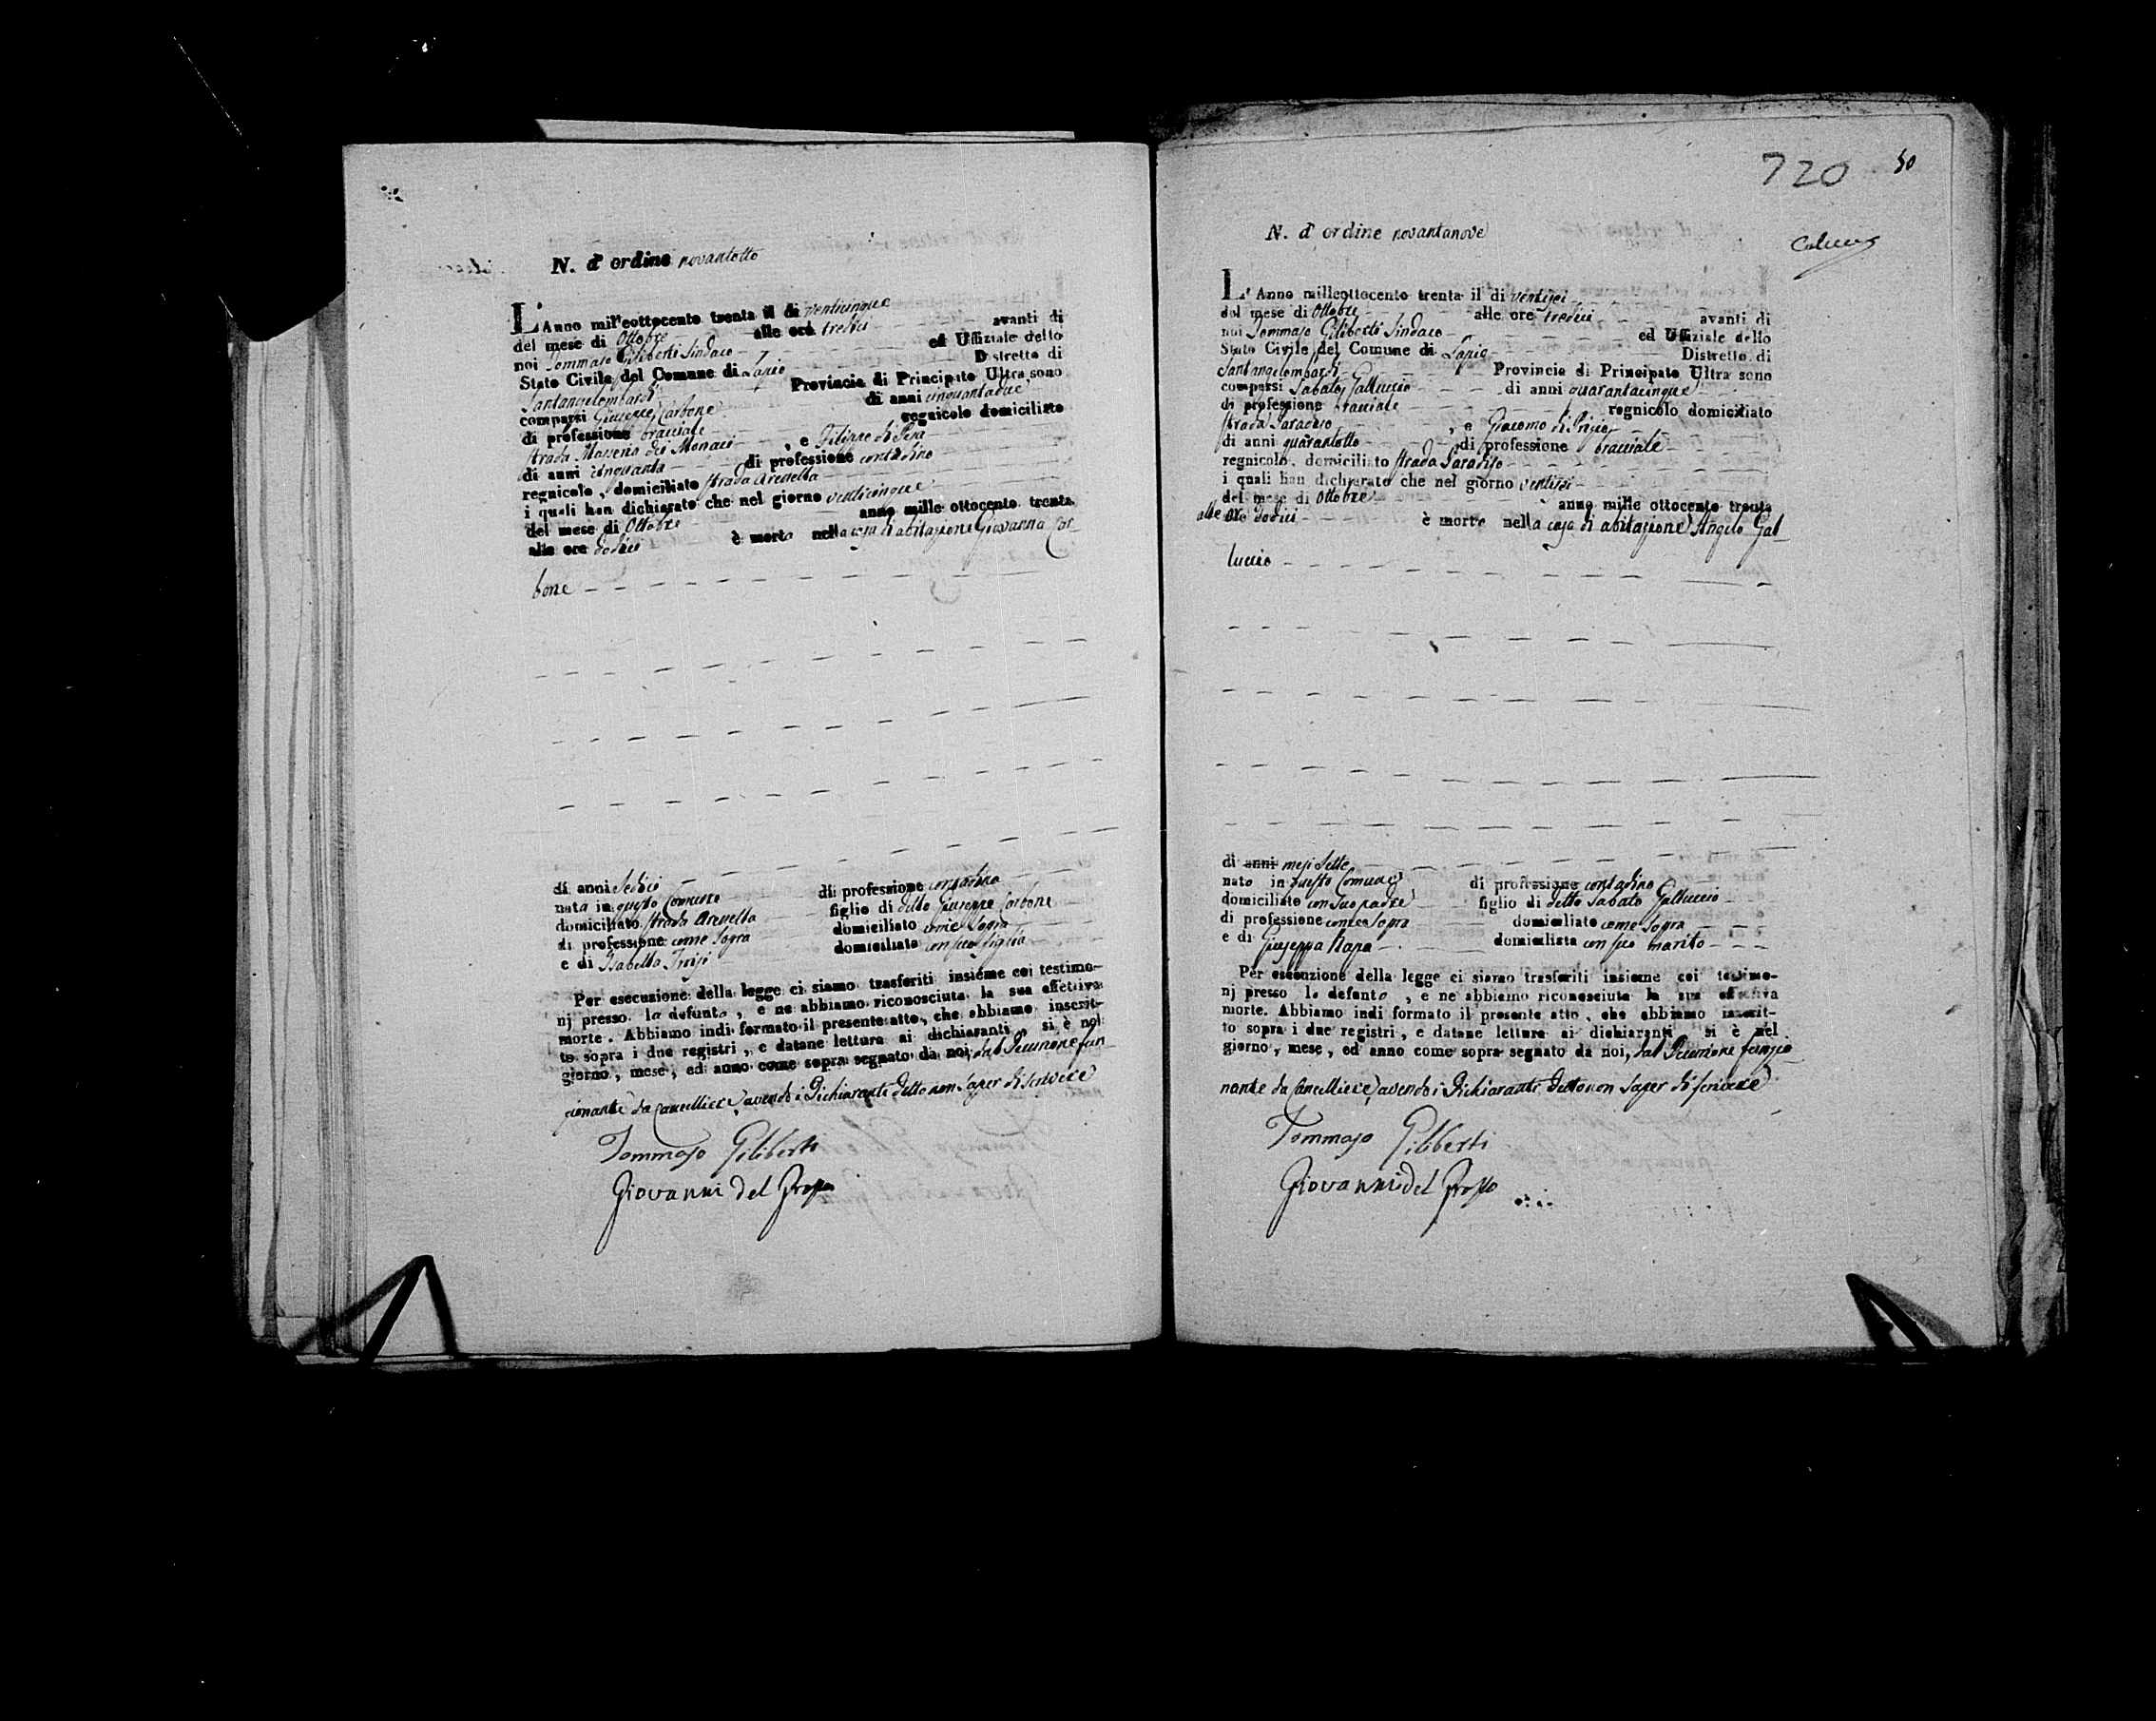 N. d' ordine novantotto
L' Anno mill'eottocento trenta il di venticinque
del mese di Ottobre alle ore tredici avanti di
noi Tommaso Giliberti Sindaco ed Uffiziale dello
Stato Civile del Comune di Lapio Distretto di
Santangelombardi Provincia di Principato Ultra, sono
comparsi Giuseppe Carbone di anni cinquantadue
di professione bracciale regnicolo domiciliato
strada Masseria dei Monaci , e Filippo di
di anni cinquanta di professione contadino
regnicolo, domiciliato strada Arenella
i quali han dichiarato che nel giorno venticinque
del mese di Ottobre anno mille ottocento trenta
alle ore dodici è morta nella casa di abitazione Giovanna Car-
bone
di anni sedici di professione contadina
nata in questo Comune figlio di detto Giuseppe Carbone
domiciliato strada Arenella domiciliato come sopra
di professione come sopra domiciliata con sua figlia
e di Isabella Troisi
Per esecuzione della legge ci siamo trasferiti insieme coi testimo-
nj presso la defunta, e ne abbiamo riconosciuta la sua effettiva
morte. Abbiamo indi formato il presente atto, che abbiamo inscrit-
to sopra i due registri, e datane lettura ai dichiaranti, si è nel
giorno, mese, ed anno come sopra segnato da noi, dal Decurione fun
zionante da Cancelliere, avendo i Dichiaranti detto non saper di scrivere
Tommaso Giliberti
Giovanni del Grosso
720 50
N. d' ordine novantanove
L' Anno milleottocento trenta il di ventisei
del mese di Ottobre alle ore tredici avanti di
noi Tommaso Giliberti Sindaco ed Uffiziale dello
Stato Civile del Comune di Lapio Distretto di
Santangelombardi Provincia di Principato Ultra sono
comparsi Sabato Galluccio di anni quarantacinque
di professione bracciale regnicolo domiciliato
strada Paradiso , e Giacomo di Prizio
di anni quarantotto di professione bracciale
regnicolo, domiciliato strada Paradiso
i quali han dichiarato che nel giorno ventisei
del mese di Ottobre anno mille ottocento trenta
alle ore dodici è morto nella casa di abitazione Angelo Gal-
luccio
di anni mesi sette
nato in questo Comune di professione contadino
domiciliato con suo padre figlio di detto Sabato Galluccio
di professione come sopra domiciliato come sopra
e di Giuseppa Rapa domiciliata con suo marito
Per esecuzione della legge ci siamo trasferiti insieme coi testimo-
nj presso lo defunto, e ne abbiamo riconosciuta la sua effettiva
morte. Abbiamo indi formato il presente atto, che abbiamo inscrit-
to sopra i due registri, e datane lettura ai dichiaranti si è nel
giorno, mese, ed anno come sopra segnato da noi, dal Decurione funzio-
nante da Cancelliere, avendo i Dichiaranti detto non saper di scrivere
Tommaso Giliberti
Giovanni del Grosso